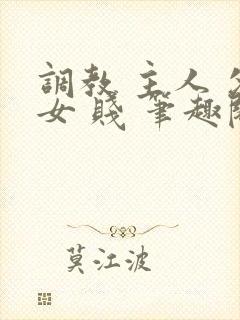 調教 主人 
女 賤 筆趣
莫江波